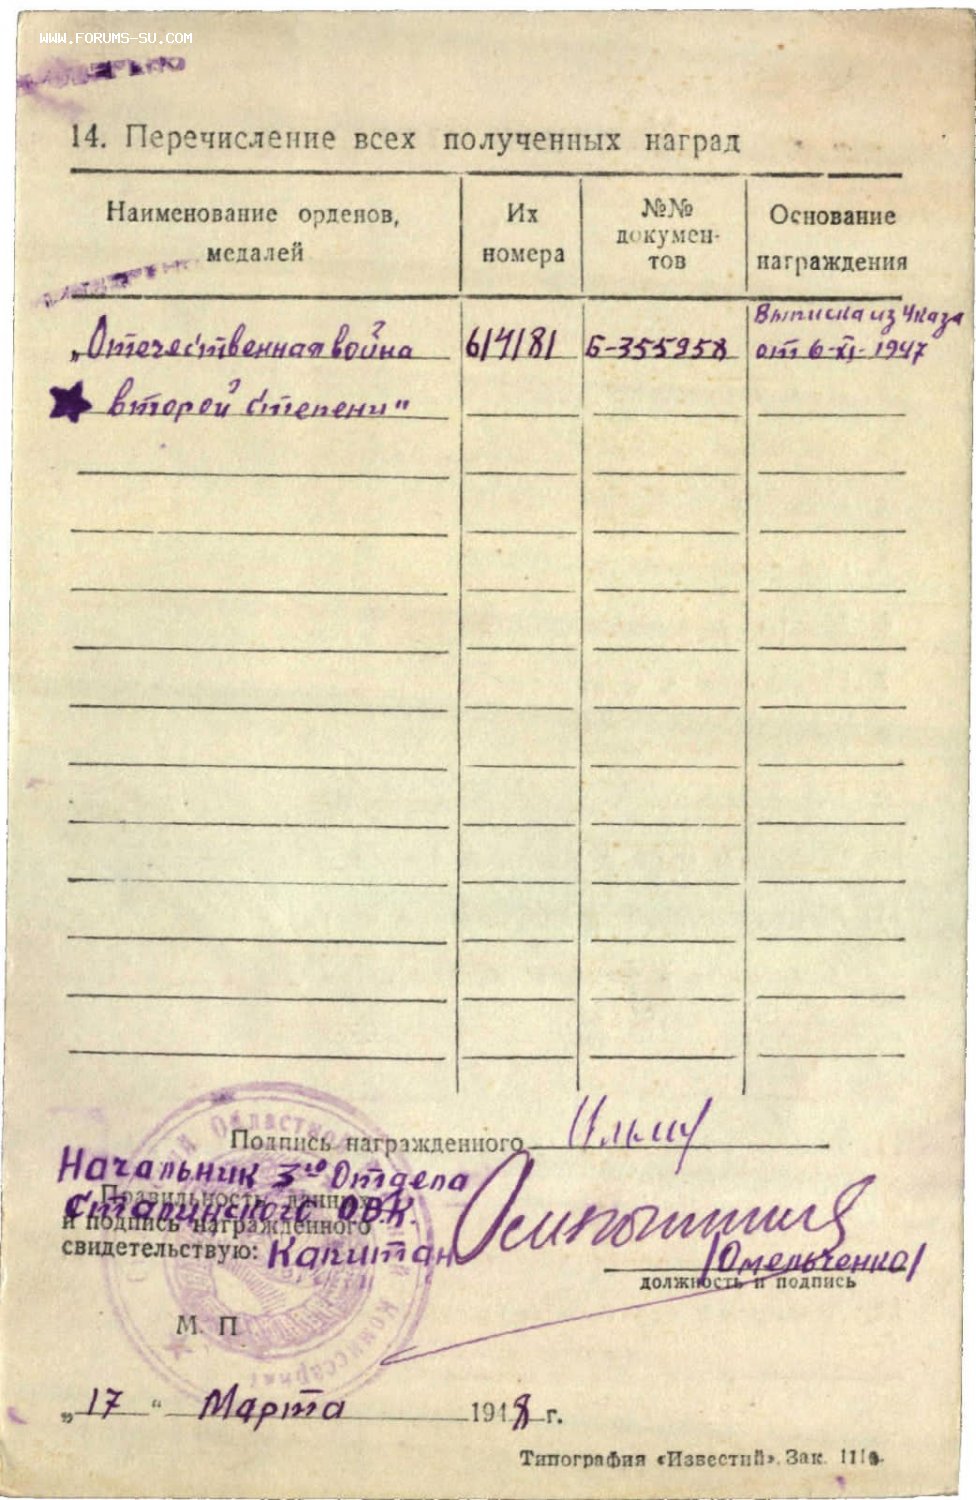 WWW.FORUMS-SU.COM
14. Перечисление всех полученных наград
Наименование орденов, медалей
Их номера
№№ докумен-тов
Основание награждения
„Отечественная война 614181 Б-355958 Выписка из Указа от 6-XI-1947
второй степени"
Подпись награжденного
Начальник 3го Отдела
Правильность данных
Сталинского ОВК.
и подпись награжденного
свидетельствую: Капитан
/Омельченко/
должность и подпись
М. П
„17" Марта 1948 г.
Типография «Известий». Зак.